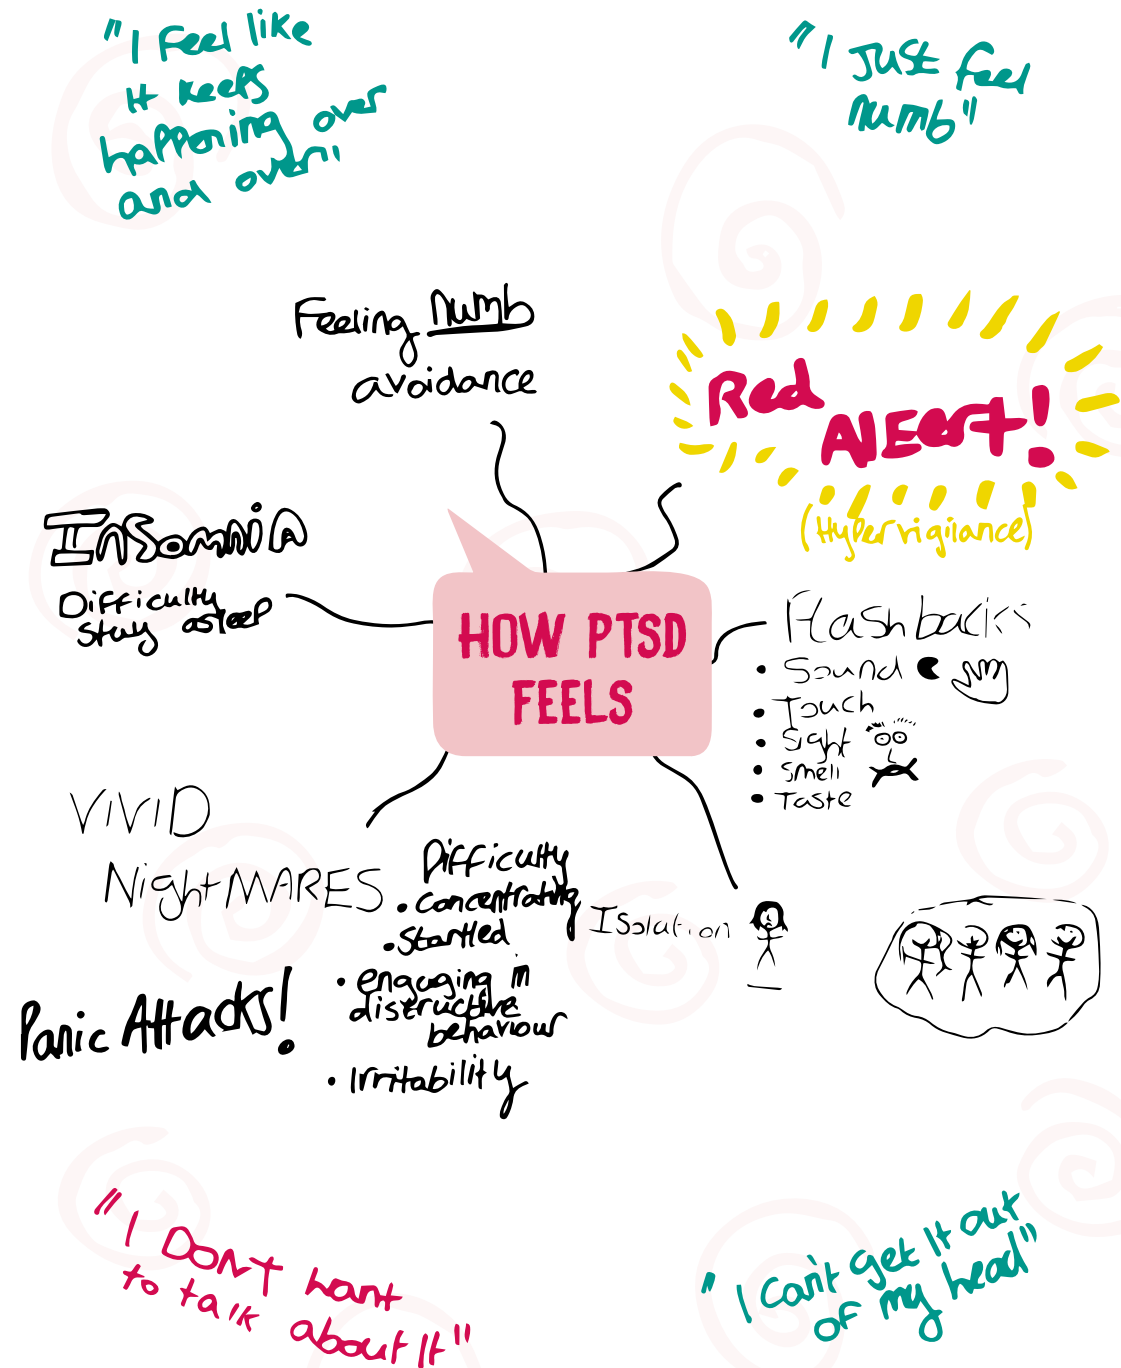 "I Feel like
It keeps
happening over
and over"
"I Just feel
numb"
Feeling numb
avoidance
Red
AlEert!
(Hypervigilance)
InSomniA
Difficulty
stay asleep
HOW PTSD
FEELS
Flashbacks
• Sound
• Touch
• Sight
• Smell
• Taste
ViViD
NightMARES
Panic Attacks!
Difficulty
• concentrating
• Startled
• engaging in
distructive
behaviour
• Irritability
Isolation
"I DON'T want
to talk
about It"
"I can't get It out
of my head"